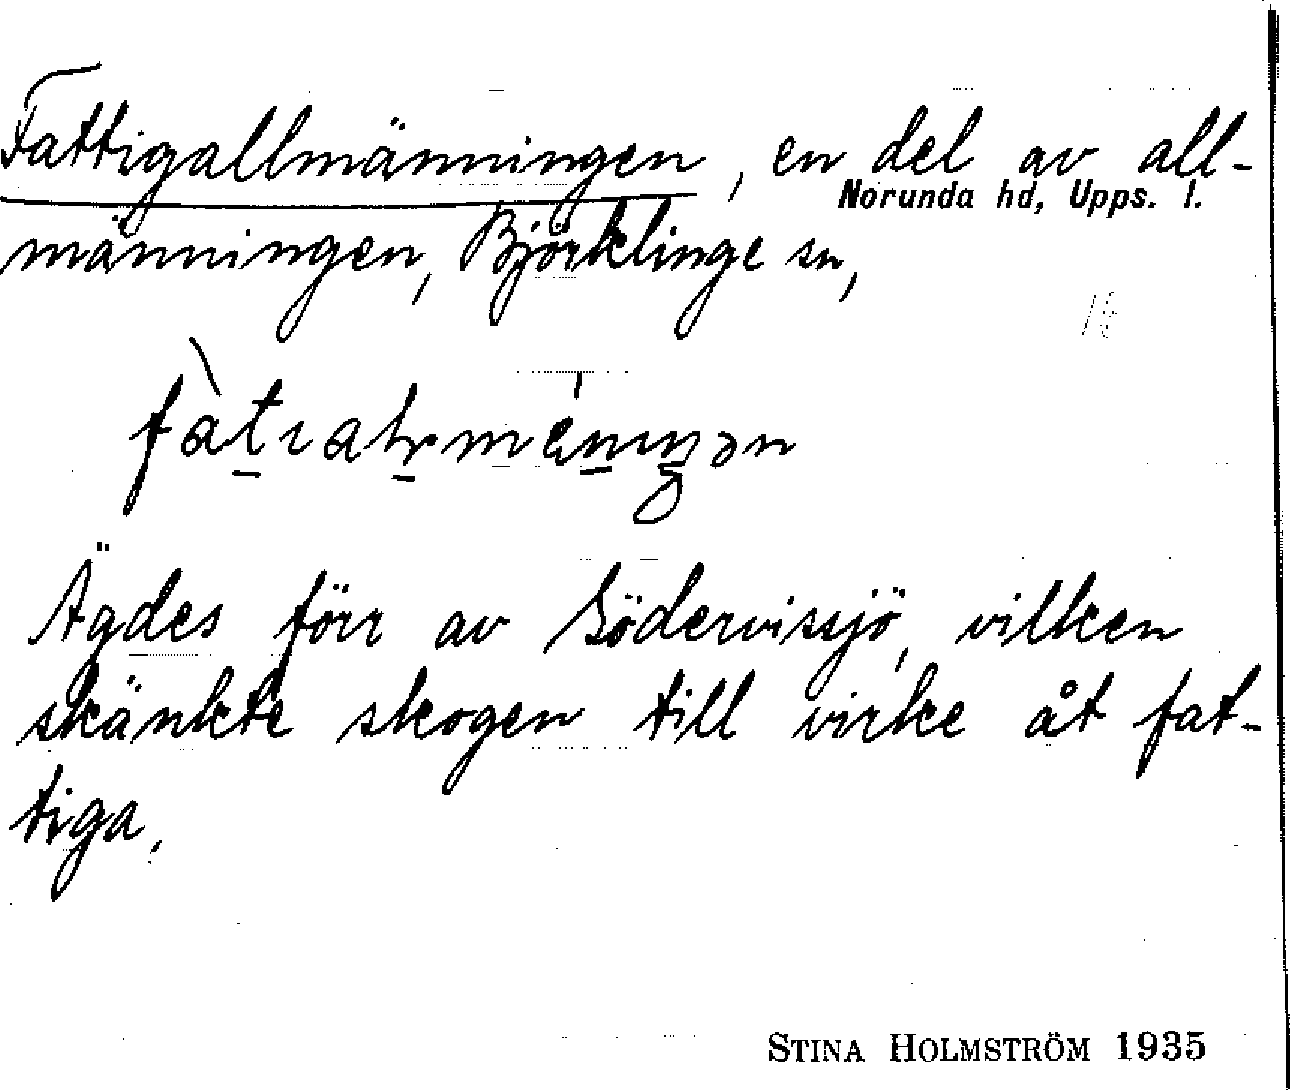 Fattigallmänningen, en del av all-
Norunda hd, Upps. l.
männingen, Björklinge sn,
Ägdes förr av Södervissjö, vilken
skänkte skogen till virke åt fat-
tiga.
STINA HOLMSTRÖM 1935